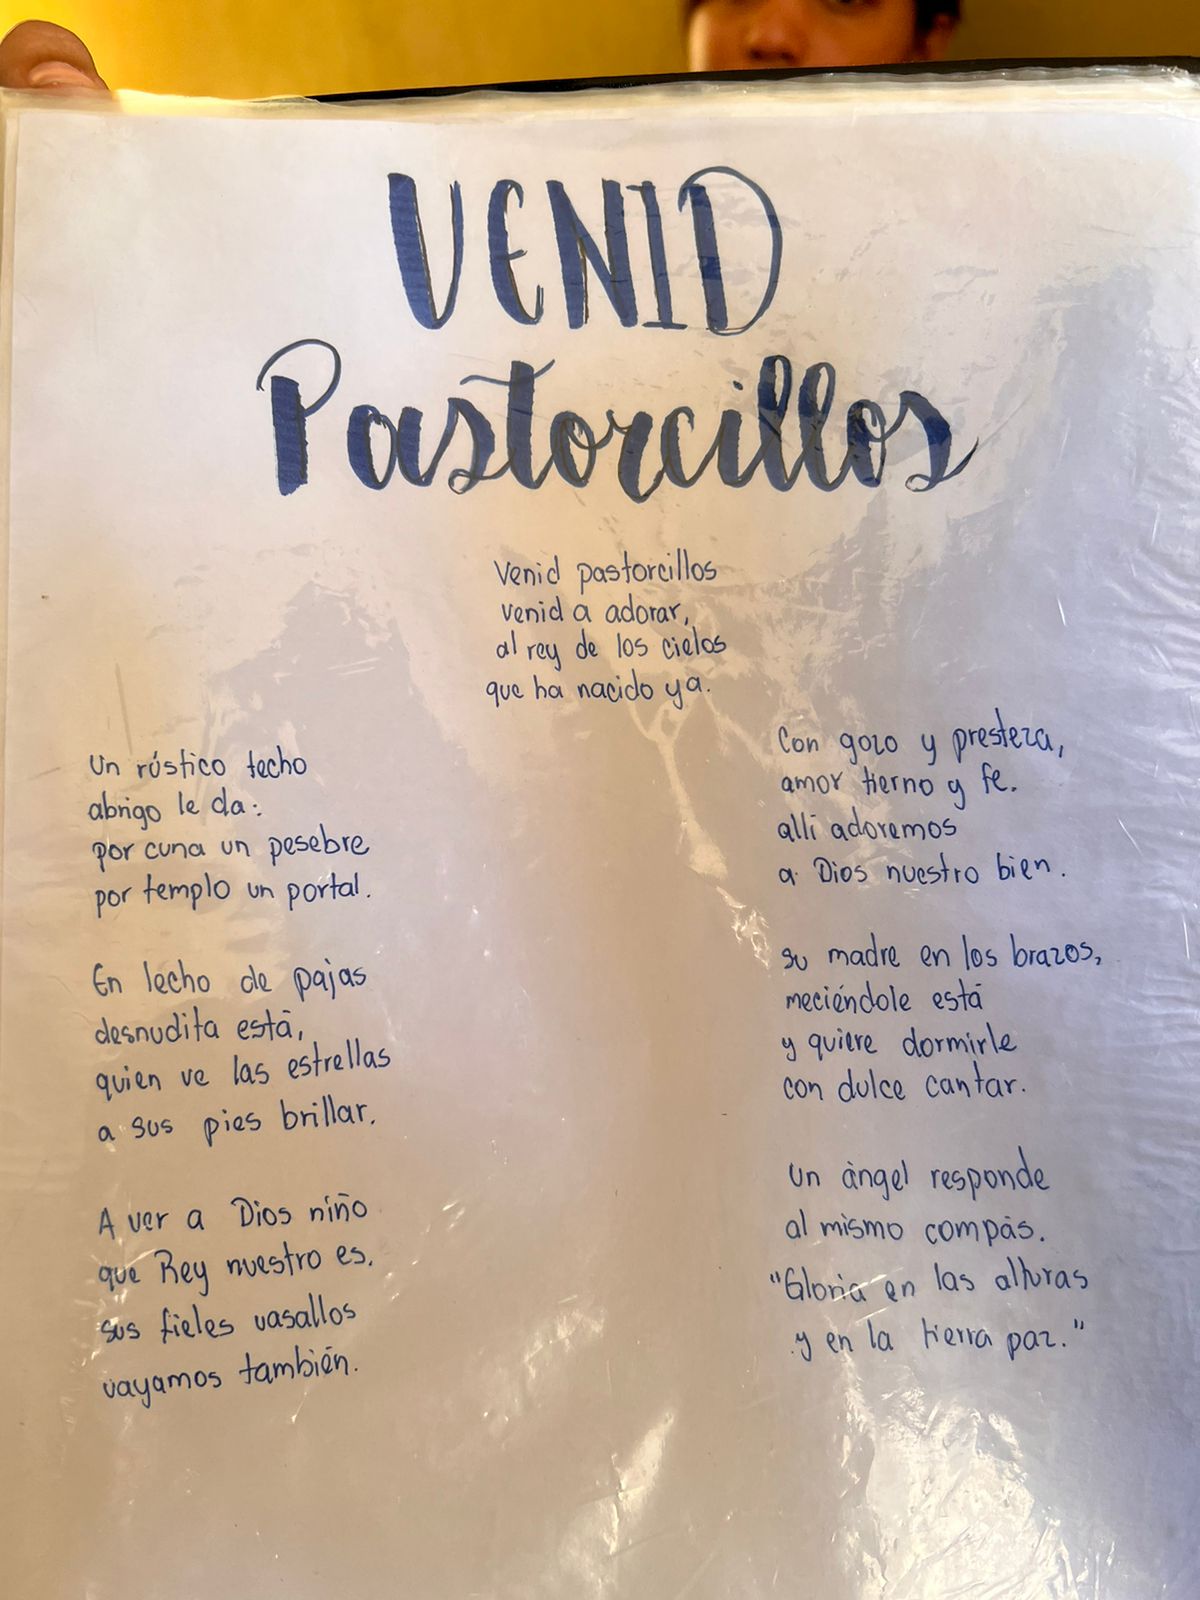 VENID
Pastorcillos
Venid pastorcillos
venid a adorar,
al rey de los cielos
que ha nacido ya.
Un rústico techo
abrigo le da:
por cuna un pesebre
por templo un portal.
En lecho de pajas
desnudita está,
quien ve las estrellas
a sus pies brillar.
A ver a Dios niño
que Rey nuestro es.
sus fieles vasallos
vayamos también.
Con gozo y presteza,
amor tierno y fe.
allí adoremos
a Dios nuestro bien.
su madre en los brazos,
meciéndole está
y quiere dormirle
con dulce cantar.
Un ángel responde
al mismo compás.
"Gloria en las alturas
y en la tierra paz."